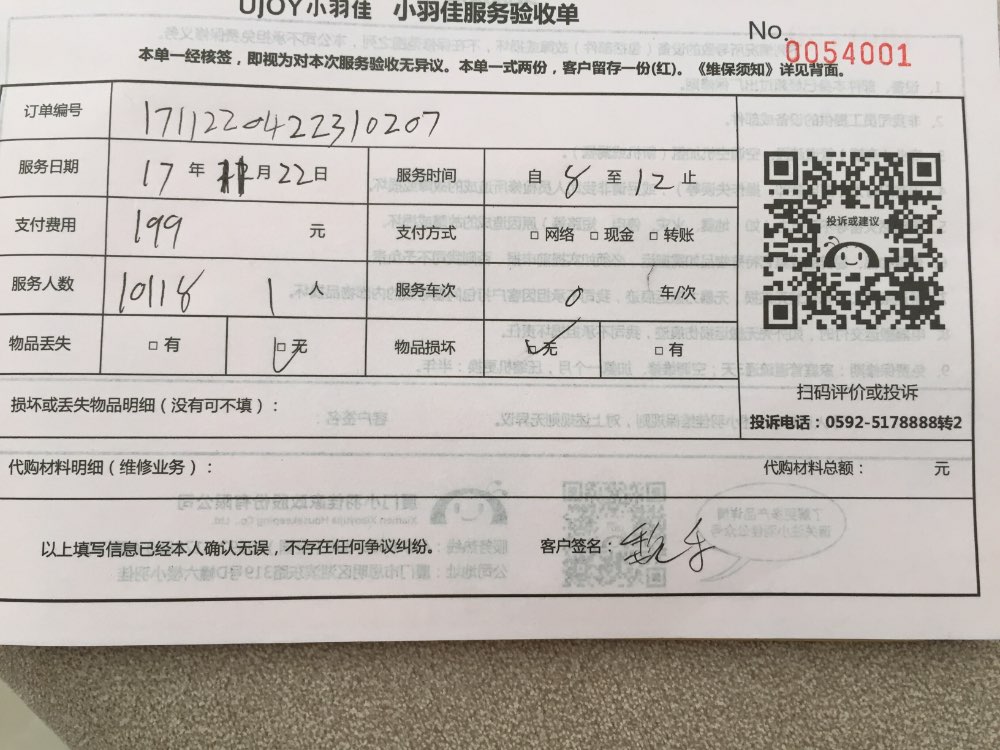 UJOY小羽佳 小羽佳服务验收单
No.0054001
本单一经核签，即视为对本次服务验收无异议。本单一式两份，客户留存一份(红)。《维保须知》详见背面。
订单编号 1711220422310207
服务日期 17年11月22日 服务时间 自8至12止
支付费用 199元 支付方式 □网络 □现金 □转账
投诉或建议
服务人数 10118 1人 服务车次 0车/次
物品丢失 □有 □无 物品损坏 □无 □有
扫码评价或投诉
损坏或丢失物品明细（没有可不填）：
投诉电话：0592-5178888转2
代购材料明细（维修业务）： 代购材料总额： 元
以上填写信息已经本人确认无误，不存在任何争议纠纷。 客户签名：